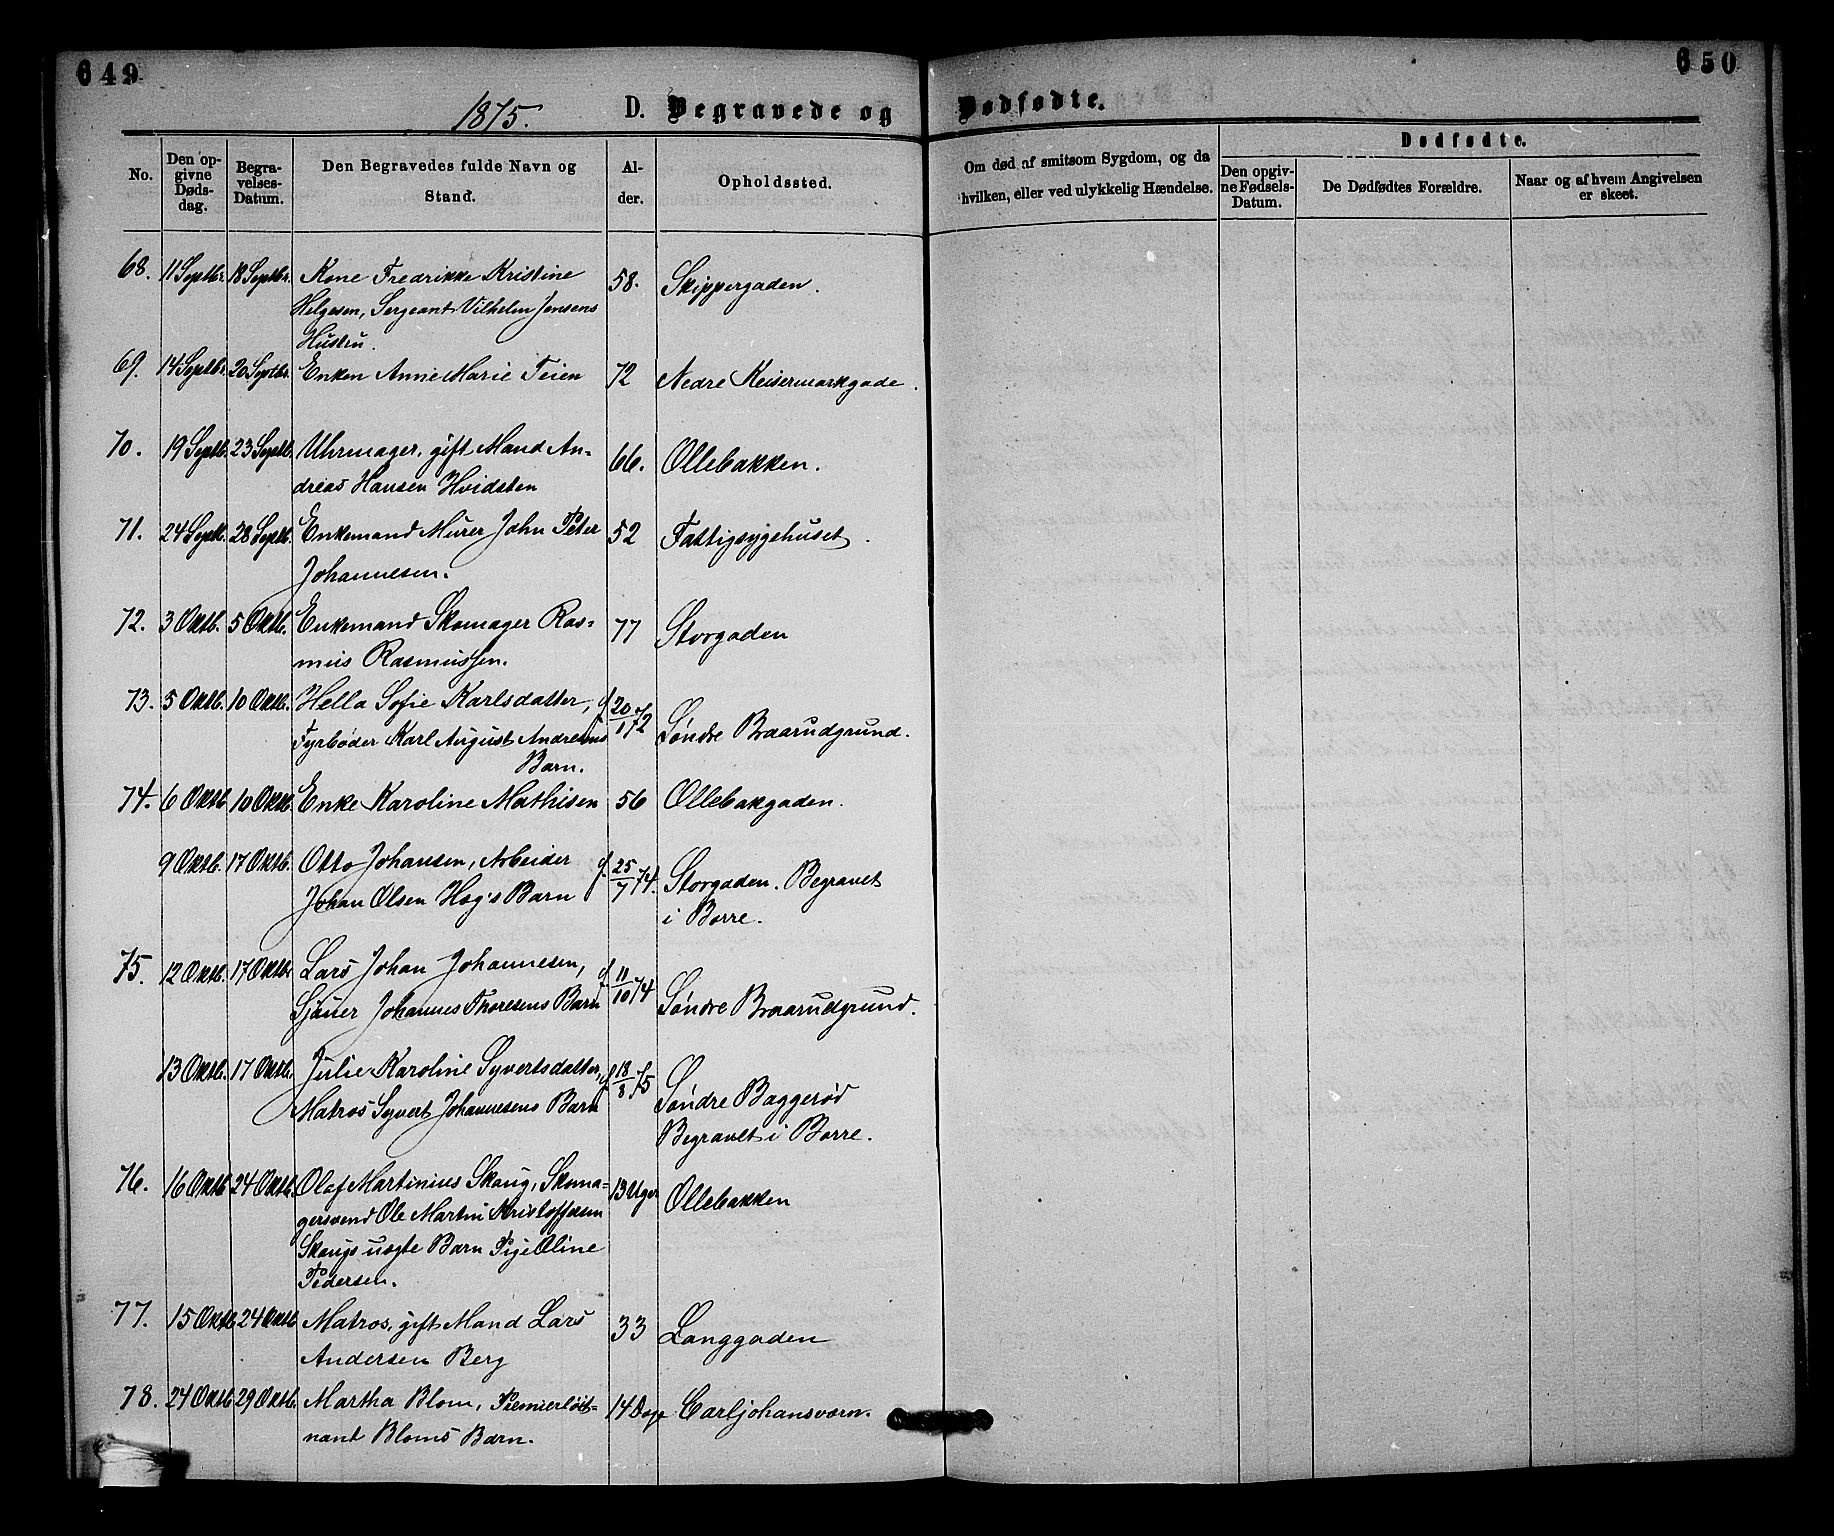 649
650
1875.
D. Begravede og Dødfødte.
No.
Den opgivne Dødsdag.
Begravelses-Datum.
Den Begravedes fulde Navn og Stand.
Alder.
Opholdssted.
Om død af smitsom Sygdom, og da hvilken, eller ved ulykkelig Hændelse.
Dødfødte.
Den opgivne Fødsels-Datum.
De Dødfødtes Forældre.
Naar og af hvem Angivelsen er skeet.
68. 11 Septbr. 18 Septbr. Kone Fredrikke Kristine 58. Skippergaden.
Helgesen, Sergeant Vilhelm Jensens
Hustru.
69. 14 Septbr. 20 Septbr. Enken Anne Marie Teien 72 Nedre Keisermarkgade.
70. 19 Septb. 23 Septb. Uhrmager, gift Mand An- 66. Ollebakken.
dreas Hansen Hvidsten
71. 24 Septb. 28 Septb. Enkemand Murer John Peter 52 Fattigsygehuset.
Johannesen.
72. 3 Oktb. 5 Oktb. Enkemand Skomager Ras- 77 Storgaden
mus Rasmussen.
73. 5 Oktb. 10 Oktb. Hella Sofie Karlsdatter, f. 20/1 72 Søndre Braarudgrund.
Fyrbøder Karl August Andresens
Barn.
74. 6 Oktb. 10 Oktb. Enke Karoline Mathisen 56 Ollebakgaden.
9 Oktb. 17 Oktb. Otto Johansen, Arbeider f. 25/7 74. Storgaden. Begravet
Johan Olsen Hog's Barn i Borre.
75. 12 Oktb. 17 Oktb. Lars Johan Johannesen, f. 11/10 74
Sjauer Johannes Thoresens Barn Søndre Braarudgrund.
13 Oktb. 17 Oktb. Julie Karoline Syvertsdatter, f. 18/8 75 Søndre Baggerød
Matros Syvert Johannesens Barn Begravet i Borre.
76. 16 Oktb. 24 Oktb. Olaf Martinius Skaug, Skoma- 13 Uger Ollebakken
gersvend Ole Martin Kristoffersen
Skaugs uægte Barn Pige Oline
Pedersen.
77. 15 Oktb. 24 Oktb. Matros, gift Mand Lars 33 Langgaden
Andersen Berg
78. 24 Oktb. 29 Oktb. Martha Blom, Premierløit- 14 Dage Carljohansværn.
nant Bloms Barn.